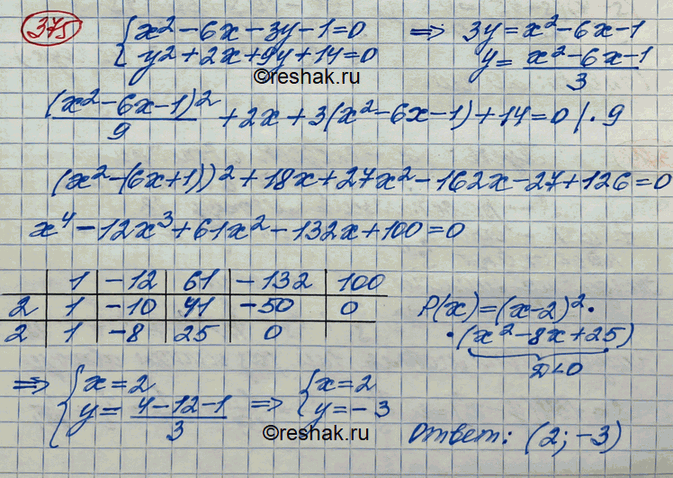 375 { x² - 6x - 3y - 1 = 0 ⇒ 3y = x² - 6x - 1
{ y² + 2x + 9y + 14 = 0 y = (x² - 6x - 1)/3
©reshak.ru
(x² - 6x - 1)²/9 + 2x + 3(x² - 6x - 1) + 14 = 0 | · 9
(x² - (6x + 1))² + 18x + 27x² - 162x - 27 + 126 = 0
x⁴ - 12x³ + 61x² - 132x + 100 = 0
| 1 | -12 | 61 | -132 | 100
2 | 1 | -10 | 41 | -50 | 0
2 | 1 | -8 | 25 | 0 |
P(x) = (x - 2)² ·
· (x² - 8x + 25)
D < 0
⇒ { x = 2 ⇒ { x = 2
{ y = (4 - 12 - 1)/3 { y = -3
©reshak.ru
Ответ: (2; -3)